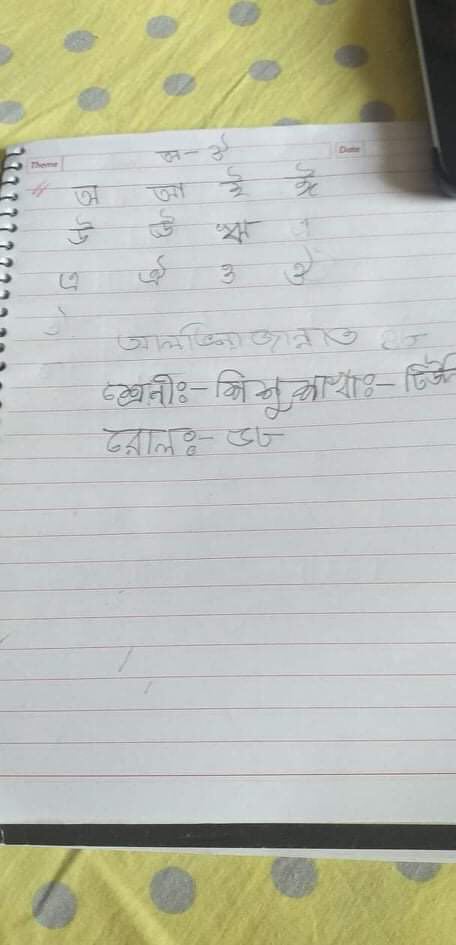 Theme অ-ঔ Date
অ আ ই ঈ
উ ঊ ঋ
এ ঐ ও ঔ
আলভিনা জান্নাত
শ্রেনীঃ- শিশু শাখাঃ-
রোলঃ- ৩৮